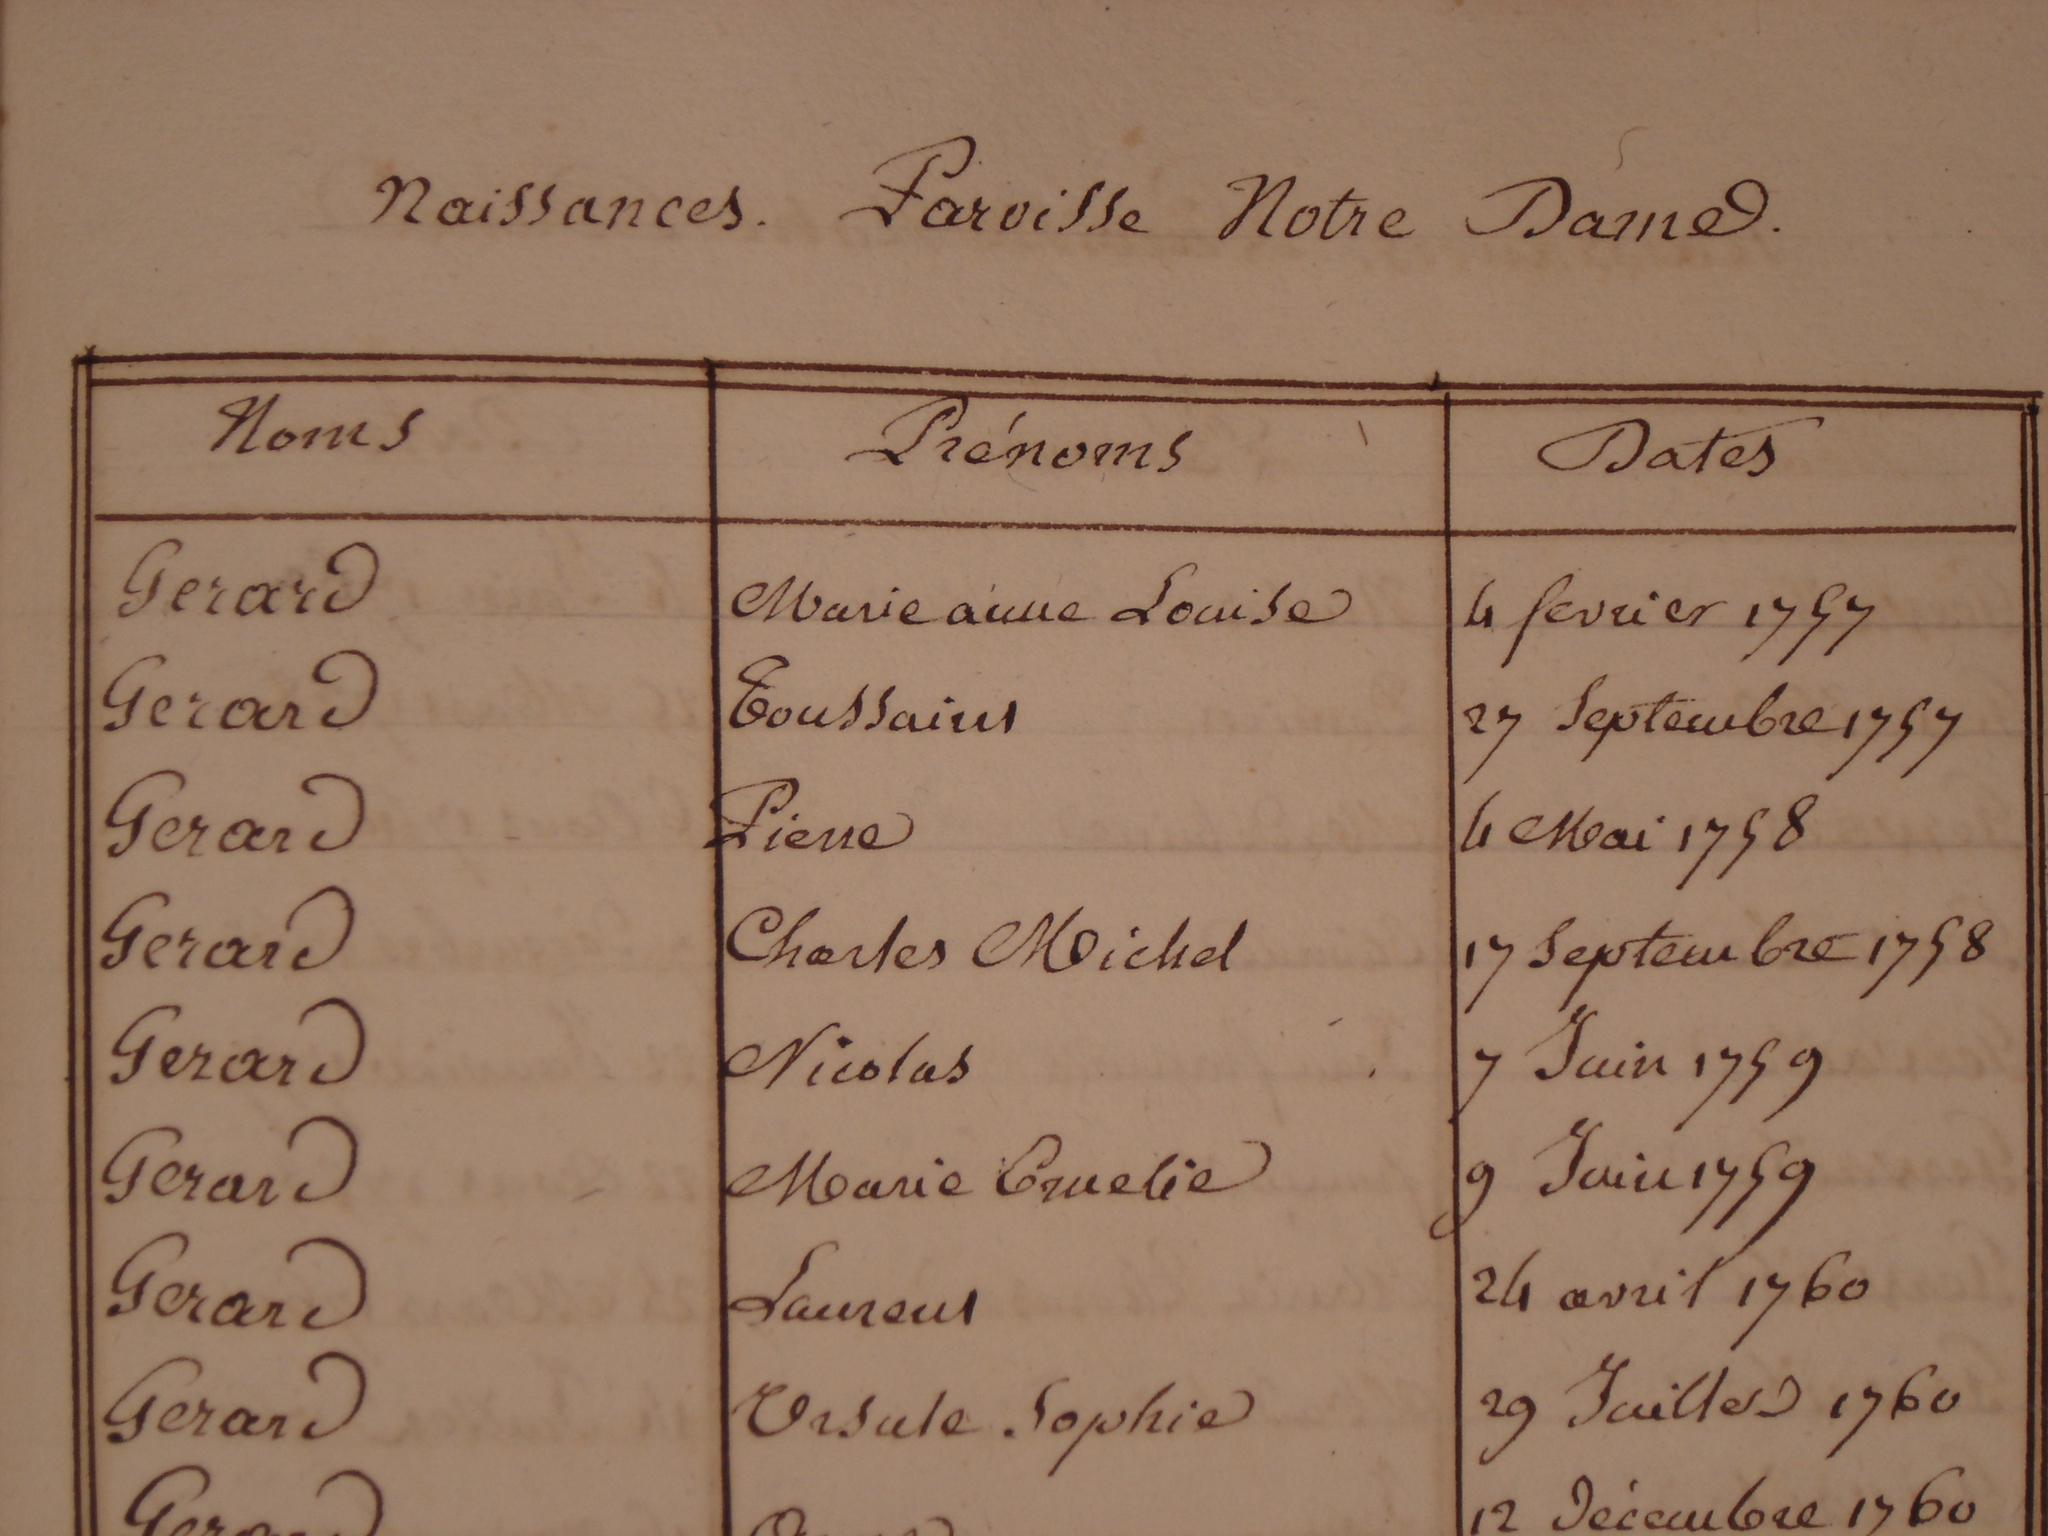 Naissances. Paroisse Notre Dame.
Noms Prénoms Dates
Gerard Marie anne Louise 4 fevrier 1757
Gerard Toussaint 27 Septembre 1757
Gerard Pierre 4 Mai 1758
Gerard Charles Michel 17 Septembre 1758
Gerard Nicolas 7 Juin 1759
Gerard Marie Emelie 9 Juin 1759
Gerard Laurent 24 avril 1760
Gerard Ursule Sophie 29 Juillet 1760
Gerard 12 Décembre 1760